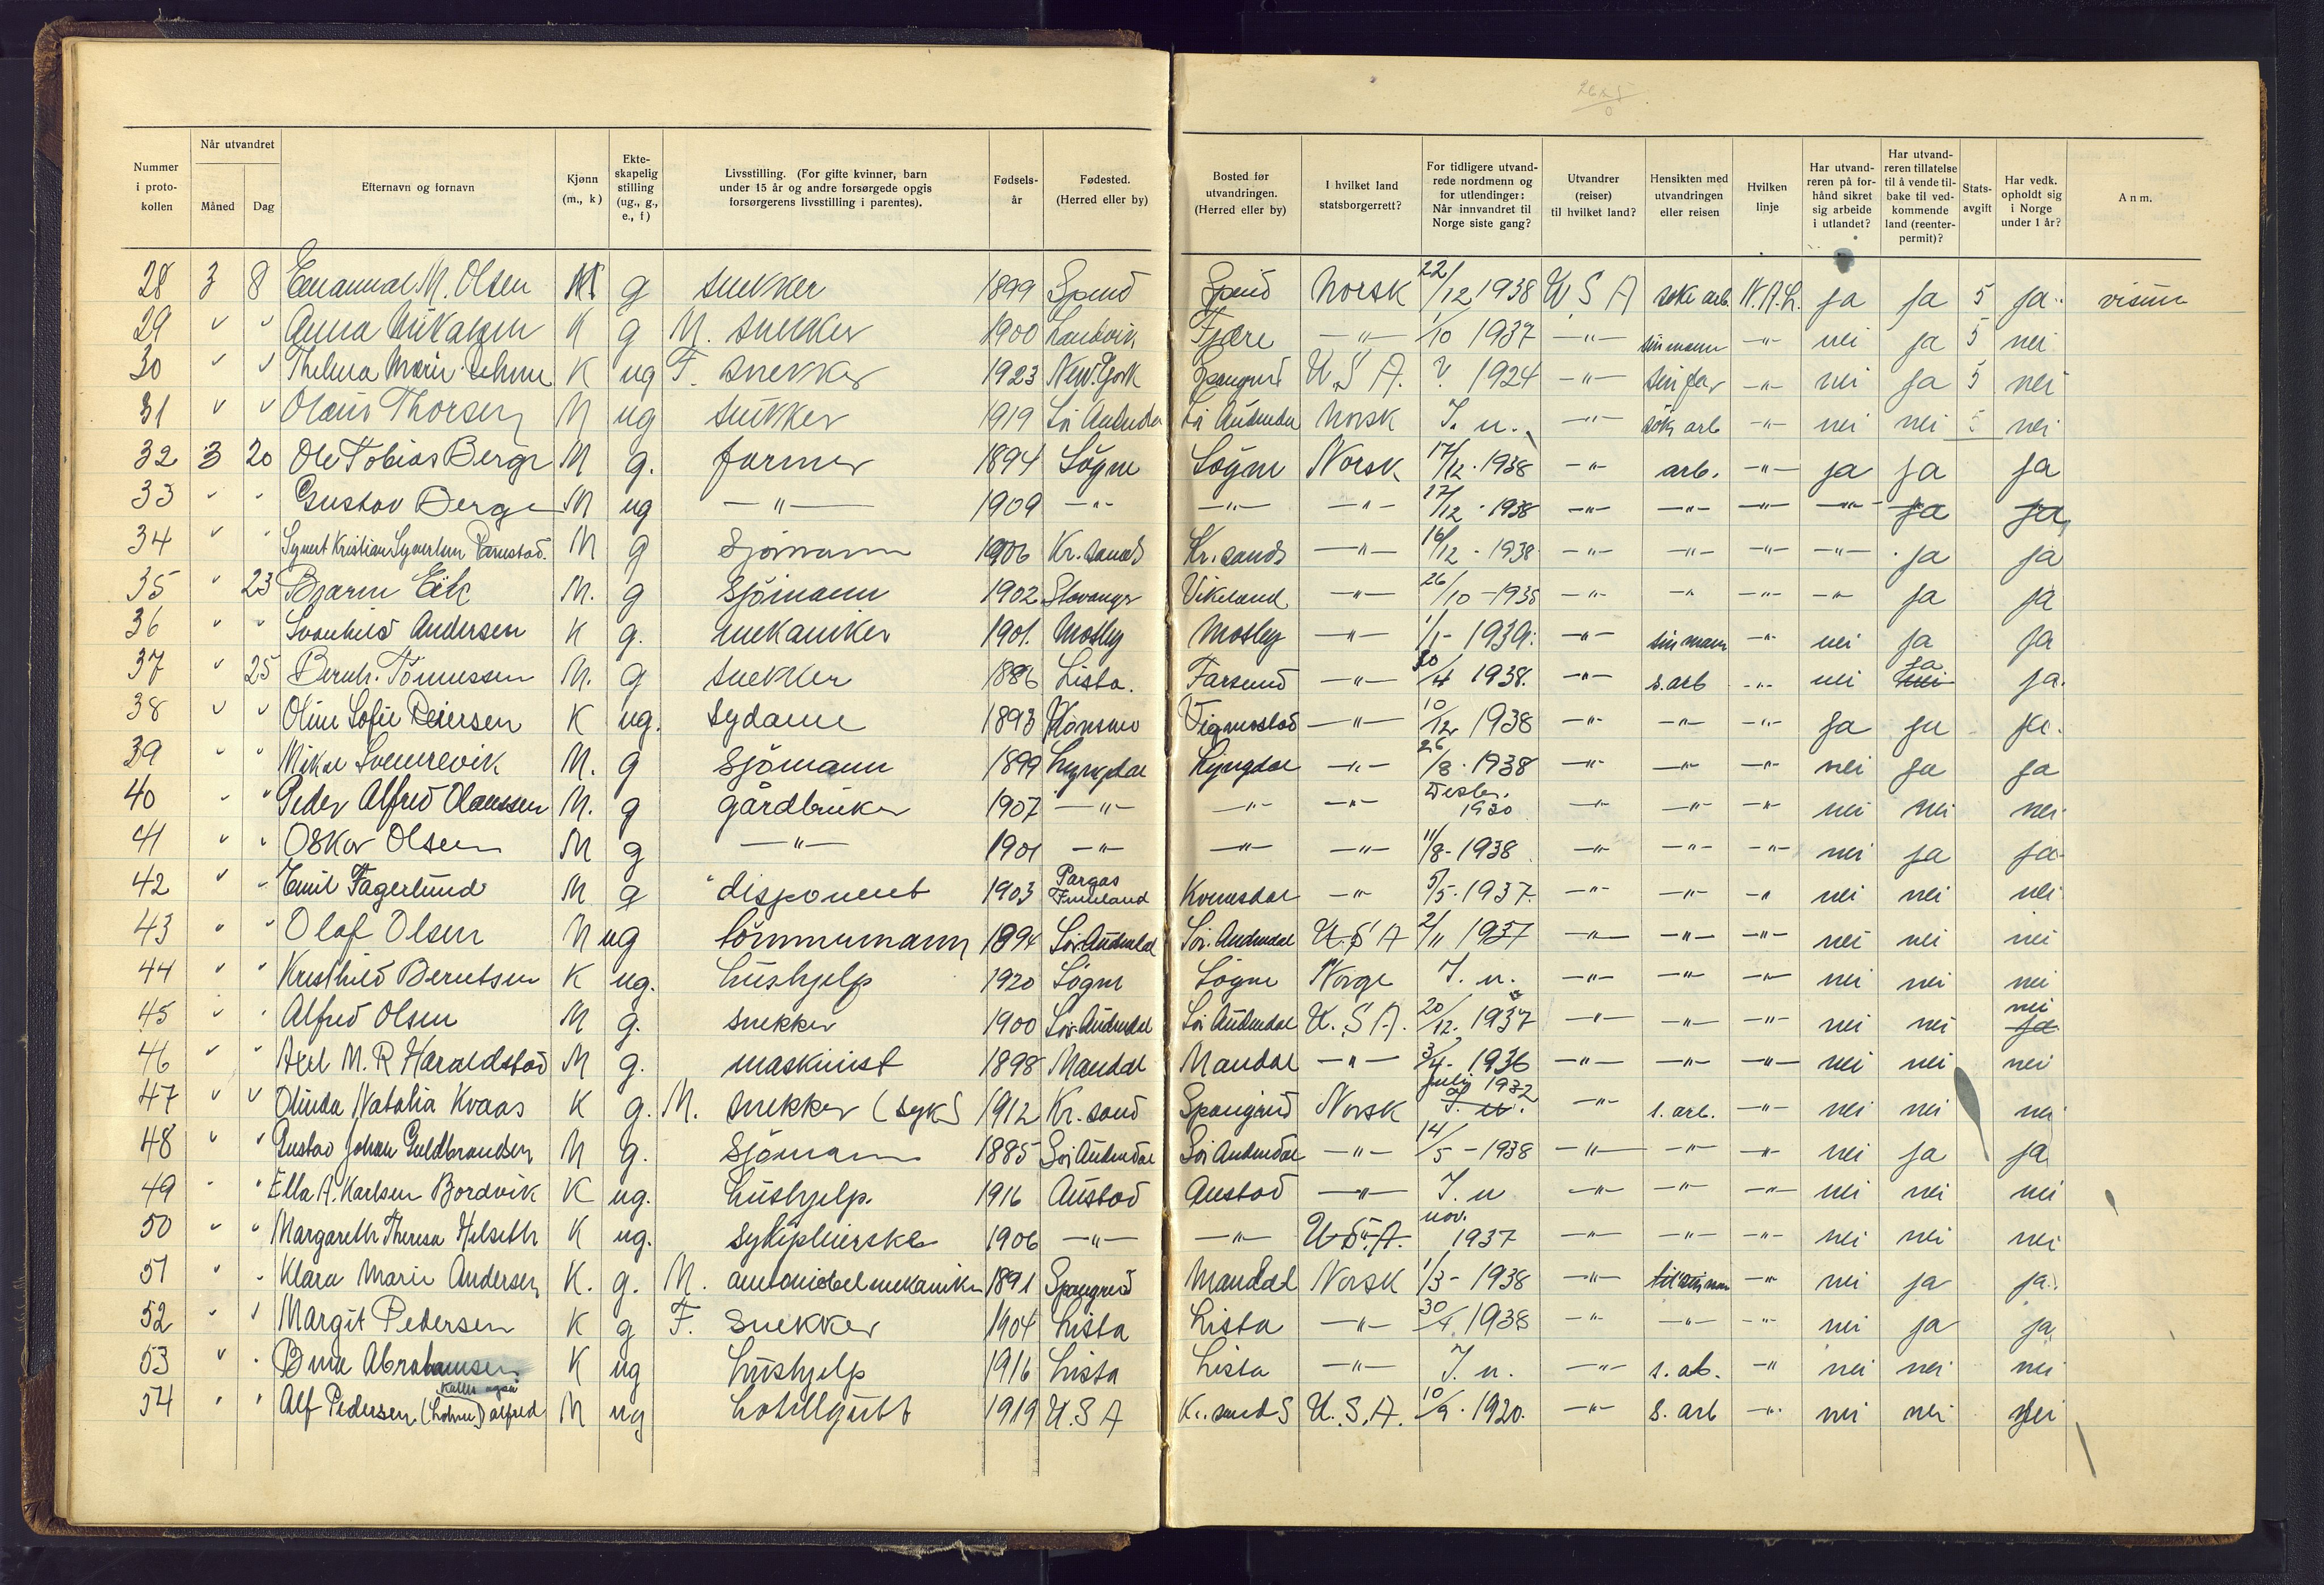 2625
0
Nummer i protokollen | Når utvandret Måned | Dag | Efternavn og fornavn | Kjønn (m., k) | Ekteskapelig stilling (ug., g., e., f) | Livsstilling. (For gifte kvinner, barn under 15 år og andre forsørgede opgis forsørgerens livsstilling i parentes). | Fødselsår | Fødested. (Herred eller by) | Bosted før utvandringen. (Herred eller by) | I hvilket land statsborgerrett? | For tidligere utvandrede nordmenn og for utlendinger: Når innvandret til Norge siste gang? | Utvandrer (reiser) til hvilket land? | Hensikten med utvandringen eller reisen | Hvilken linje | Har utvandreren på forhånd sikret sig arbeide i utlandet? | Har utvandreren tillatelse til å vende tilbake til vedkommende land (reenterpermit)? | Statsavgift | Har vedk. opholdt sig i Norge under 1 år? | Anm.
28 3 8 Emanuel M. Olsen M g snekker 1899 Spind Spind Norsk 22/12 1938 U S A søke arb. N.A.L. ja ja 5 ja visum
29 " " Anna K g M. snekker 1900 Landvik Fjære -"- 1/10 1937 -"- sin mann -"- nei ja 5 nei
30 " " Thelma Marie K ug F. snekker 1923 New York Spangereid U.S A. ? 1924 -"- sin far -"- nei ja 5 nei
31 " " Olaus Thorsen M ug snekker 1919 Sør Audnedal Sør Audnedal Norsk I. u. -"- søk arb -"- nei nei 5 nei
32 3 20 Ole Tobias Berge M g. farmer 1894 Søgne Søgne Norsk 17/12 . 1938 -"- arb. -"- ja ja ja
33 " " Gustav Berge M ug -"- 1909 -"- -"- -"- 17/12 . 1938 -"- -"- -"- -"- ja ja
34 " " Syvert Kristian Syvertsen M g Sjømann 1906 Kr.sand S Kr.sand S -"- 16/12 - 1938 -"- -"- -"- -"- ja ja
35 " 23 Bjarne Eik M. g Sjømann 1902 Stavanger Vikeland -"- 26/10 - 1938 -"- -"- -"- -"- ja ja
36 " " Svanhild Andersen K g. mekaniker 1901. Mosby Mosby -"- 1/1 - 1939. -"- sin mann -"- nei ja ja
37 " 25 Bernh. Tønnessen M. g snekker 1886 Lista. Farsund -"- 30/4 1938. -"- s.arb -"- nei ja nei ja.
38 " " Oline Sofie Peiersen K ug. sydame 1893 Konsmo Vigmostad -"- 10/12 1938 -"- -"- -"- ja ja ja.
39 " " Mikal Svennevik M. g Sjømann 1899 Lyngdal Lyngdal -"- 26/8 . 1938 -"- -"- -"- nei ja ja
40 " " Peder Alfred Olaussen M. g gårdbruker 1907 -"- -"- -"- Desbr. 1930 -"- -"- -"- nei nei nei
41 " " Oskar Olsen M g -"- 1901 -"- -"- -"- 11/8 - 1938 -"- -"- -"- nei ja ja
42 " " Emil Fagerlund M g disponent 1903 Pargas Finnland Kvinesdal -"- 5/5 . 1937. -"- -"- -"- nei nei nei
43 " " Olaf Olsen M ug tømmermann 1894 Sør-Audnedal Sør-Audnedal U.S A 2/11 1937 -"- -"- -"- nei nei nei
44 " " Kristhild Berntsen K ug. hushjelp 1920 Søgne Søgne Norge I. u. -"- -"- -"- nei nei nei
45 " " Alfred Olsen M g. snekker 1900 Sør-Audnedal Sør Audnedal U.S A. 20/12. 1937 -"- -"- -"- nei nei nei ja
46 " " Axel M. R Haraldstad M g. maskinist 1898 Mandal Mandal -"- 3/4 - 1936 -"- -"- -"- nei nei nei
47 " " Olinda Natalia Kvaas K g. M. snekker (syk) 1912 Kr.sand Spangereid Norsk juli 1932 I. u. -"- s.arb. -"- nei nei nei
48 " " Gustav Johan Guldbrandsen M g. Sjømann 1885 Sør Audnedal Sør Audnedal -"- 14/5 - 1938 -"- -"- -"- nei ja ja
49 " " Ella A. Karlsen Bordvik K ug. hushjelp. 1916 Austad Austad -"- I. u -"- -"- -"- nei nei nei
50 " " Margareth Theresa Helseth K ug. sykepleierske 1906 -"- -"- U.S.A. nov. 1937 -"- -"- -"- nei nei nei
51 " " Klara Marie Andersen K. g. M. automobilmekaniker 1891 Spangereid Mandal Norsk 1/3 - 1938 -"- til sin man -"- nei ja ja.
52 " " Margit Pedersen K g F. Snekker 1904 Lista Lista -"- 30/4 1938 -"- -"- -"- nei ja ja
53 " " Abrahamsen K ug hushjelp 1916 Lista Lista -"- I. u. -"- s. ab. -"- nei nei nei
54 " " Alf Pedersen (Lohne) kaller også alfred M ug hotellgutt 1919 U.S A Kr.sand S U.S.A. 10/9 . 1920. -"- s. arb -"- nei nei nei